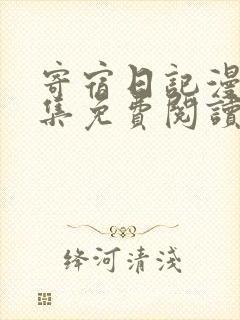 寄宿日記漫
集免費閱讀
绛河清淺